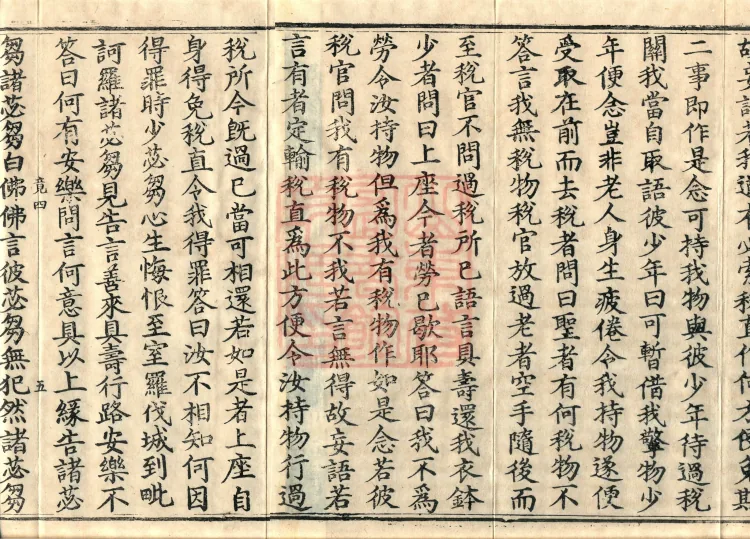 二事即作是念可持我物與彼少年待過稅
關我當自取語彼少年曰可暫借我擎物少
年便念豈非老人身生疲倦令我持物遂便
受取在前而去稅者問曰聖者有何稅物不
答言我無稅物稅官放過老者空手隨後而
至稅官不問過稅所已語言具壽還我衣鉢
少者問曰上座今者勞已歇耶答曰我不為
勞令汝持物但為我有稅物作如是念若彼
稅官問我有稅物不我若言無得故妄語若
言有者定輸稅直為此方便令汝持物行過
稅所今既過已當可相還若如是者上座自
身得免稅直令我得罪答曰汝不相知何因
得罪時少苾芻心生悔恨至室羅伐城到毗
訶羅諸苾芻見告言善來具壽行路安樂不
答曰何有安樂問言何意具以上緣告諸苾
竟四
五
芻諸苾芻白佛佛言彼苾芻無犯然諸苾芻